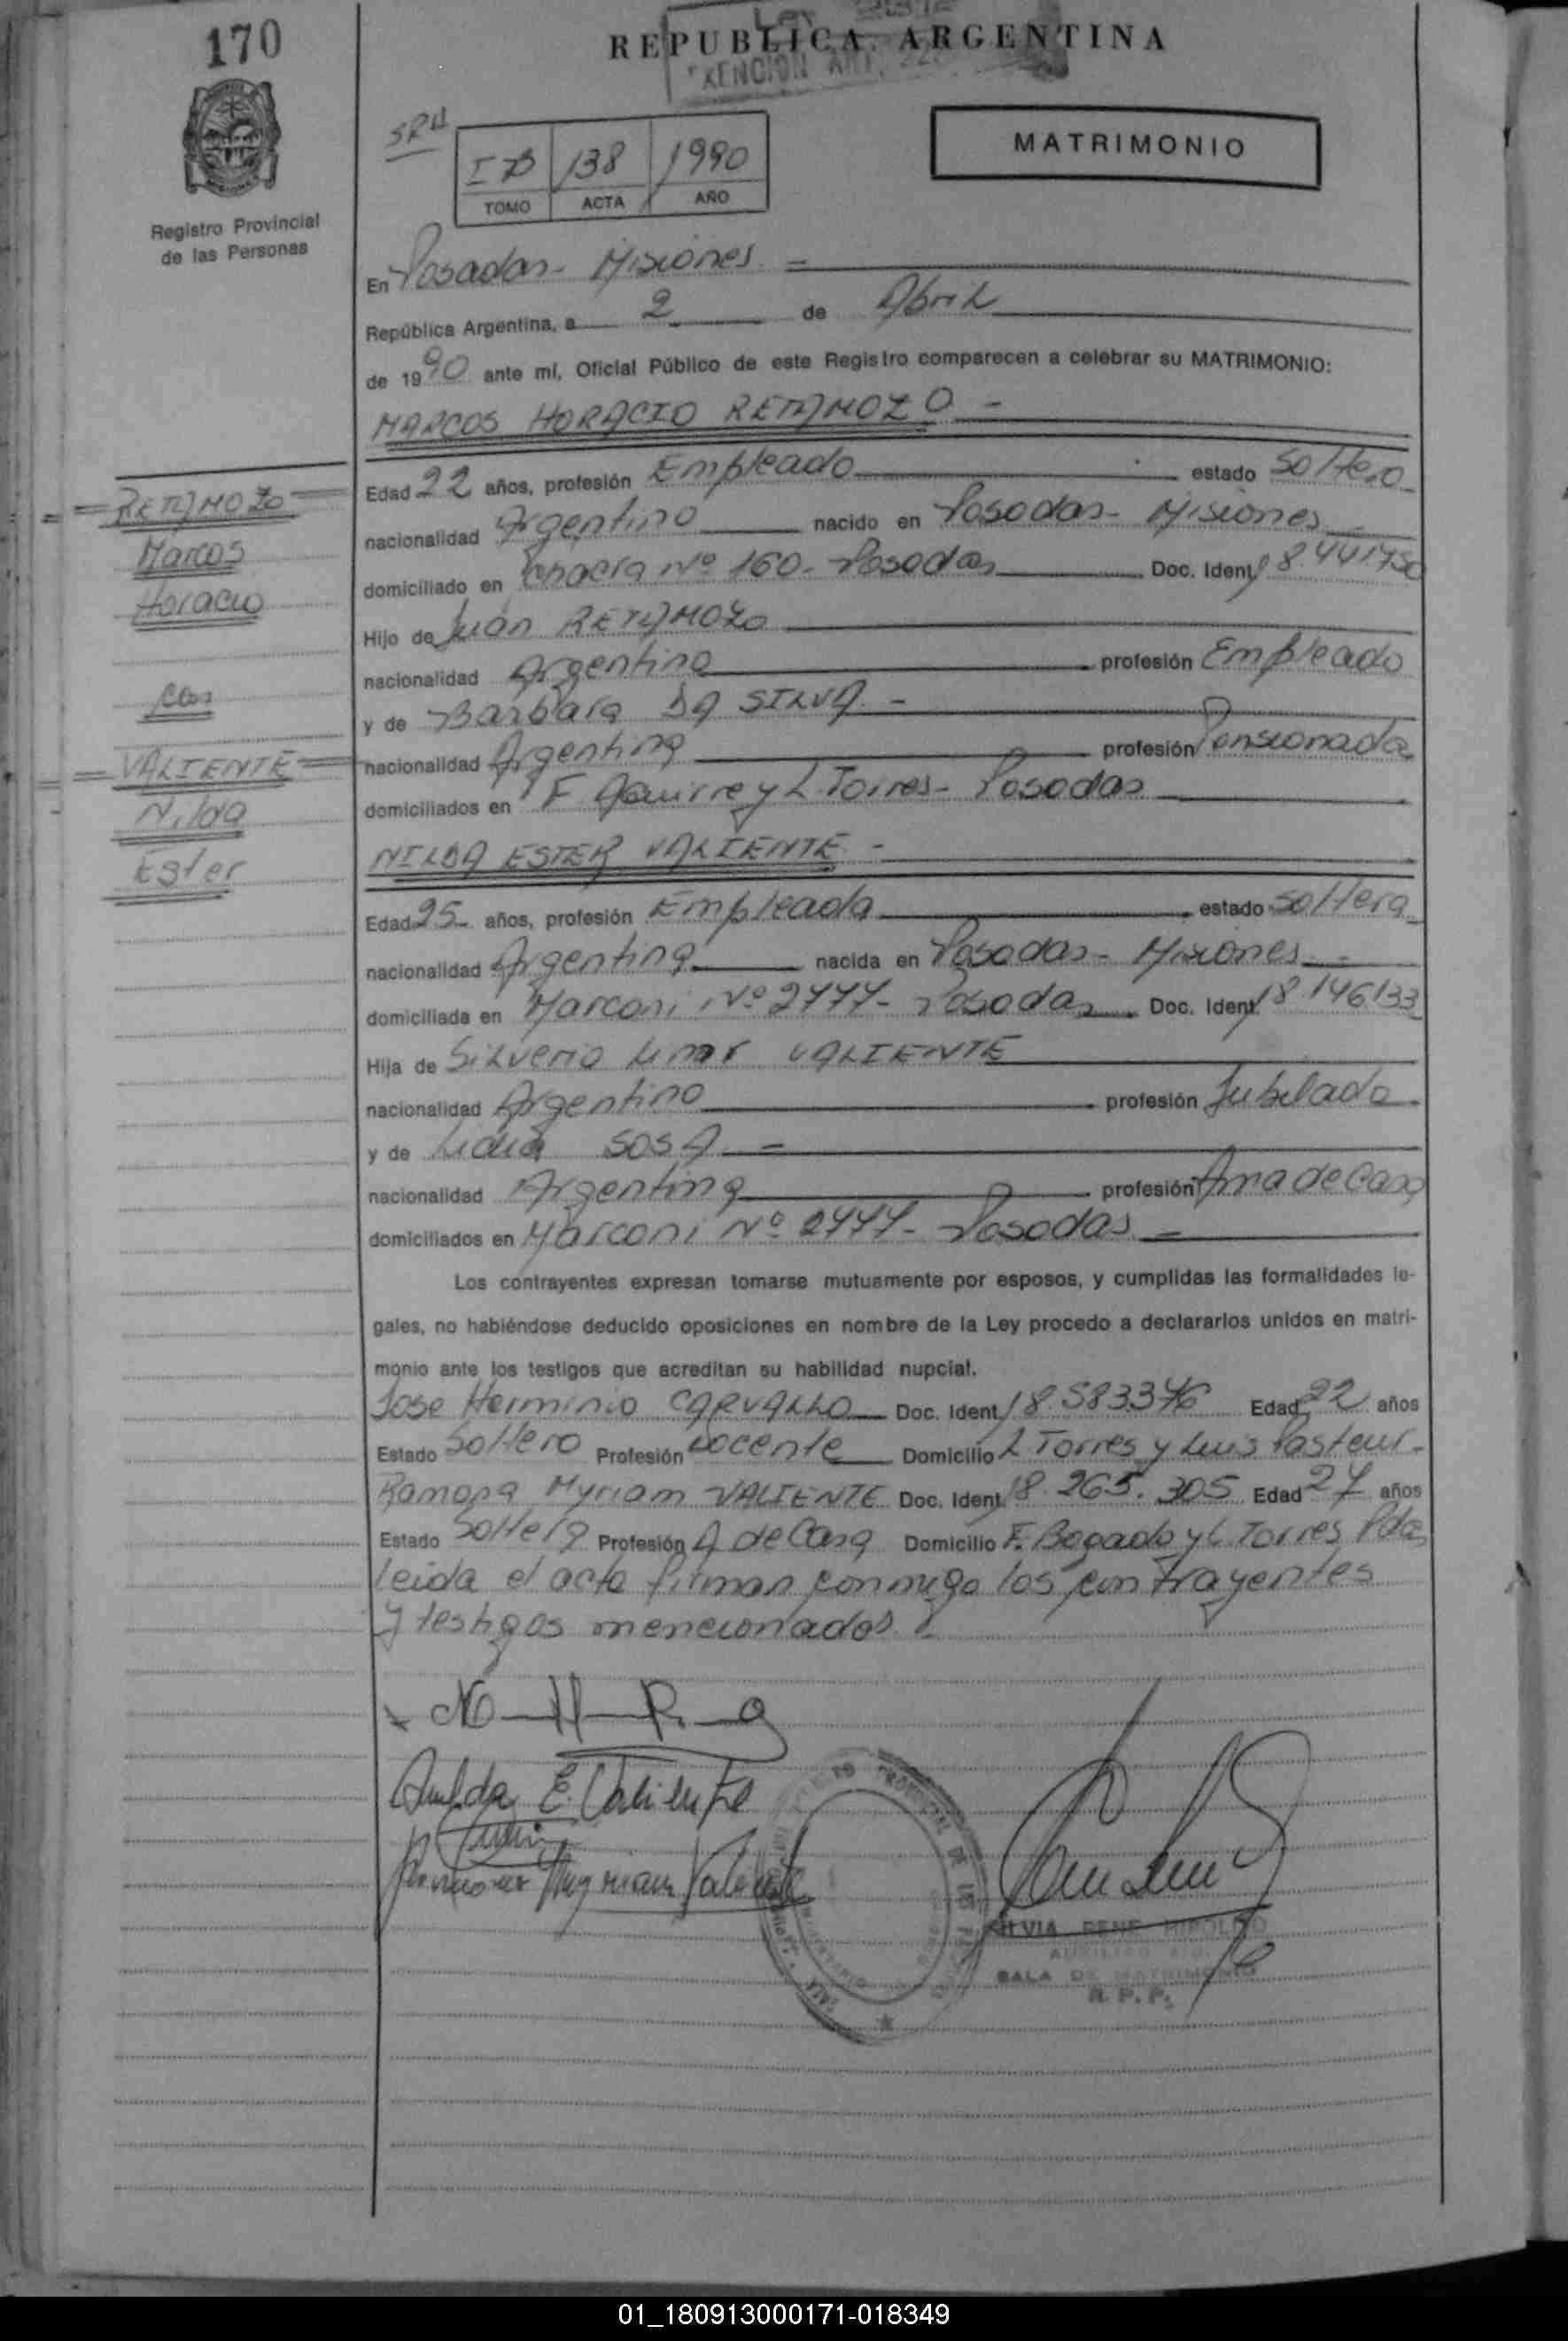 170
REPUBLICA ARGENTINA
EXENCION ART. 22
SRH
MATRIMONIO
I B 138 1990
TOMO ACTA AÑO
Registro Provincial
de las Personas
En Posadas - Misiones -
República Argentina, a 2 de Abril
de 1990 ante mí, Oficial Público de este Registro comparecen a celebrar su MATRIMONIO:
MARCOS HORACIO RETAMOZO -
Edad 22 años, profesión Empleado estado Soltero
RETAMOZO
nacionalidad Argentino nacido en Posadas - Misiones
Marcos
domiciliado en Chacra Nº 160 - Posadas Doc. Ident. 18.441750
Horacio
Hijo de Juan RETAMOZO
nacionalidad Argentino profesión Empleado
y de Barbara DA SILVA -
con
nacionalidad Argentina profesión Pensionada
VALIENTE
domiciliados en F. Aguirre y L. Torres - Posadas
Nilda
NILDA ESTER VALIENTE -
Ester
Edad 25 años, profesión Empleada estado Soltera
nacionalidad Argentina nacida en Posadas - Misiones
domiciliada en Marconi Nº 2477 - Posadas Doc. Ident. 18.146.133
Hija de Silverio VALIENTE
nacionalidad Argentino profesión Jubilado
y de Lidia SOSA -
nacionalidad Argentina profesión Ama de Casa
domiciliados en Marconi Nº 2477 - Posadas -
Los contrayentes expresan tomarse mutuamente por esposos, y cumplidas las formalidades le-
gales, no habiéndose deducido oposiciones en nombre de la Ley procedo a declararlos unidos en matri-
monio ante los testigos que acreditan su habilidad nupcial.
Jose Herminio CARVALLO Doc. Ident. 18.583346 Edad 22 años
Estado Soltero Profesión Docente Domicilio L Torres y Luis Pasteur -
Ramona Myriam VALIENTE Doc. Ident. 18.265.305 Edad 27 años
Estado Soltera Profesión A de Casa Domicilio F. Bogado y L Torres Pdas
leida el acta firman conmigo los contrayentes
y testigos mencionados
E. Valiente
Myriam Valiente
SILVIA RENE HIPOLITO
SALA DE MATRIMONIO
R. P. P.
01_180913000171-018349